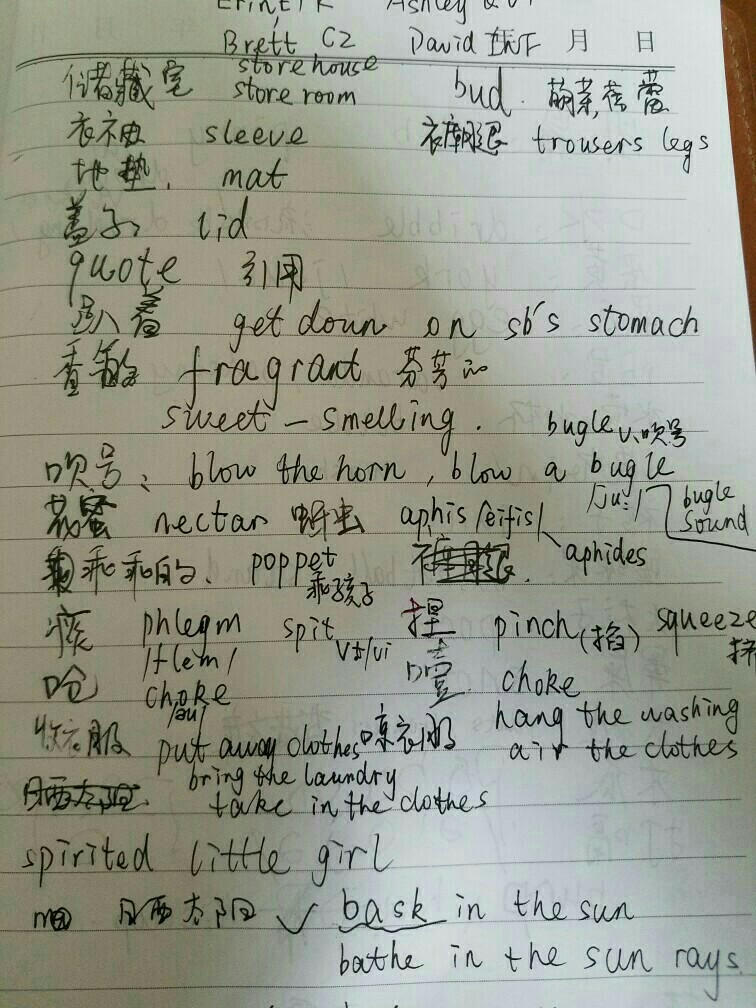 Brett C2 David 月 日
储藏室 storehouse bud. 萌芽,蓓蕾
store room
衣袖 sleeve 裤腿 trousers legs
地垫. mat
盖子 lid
quote 引用
趴着 get down on sb's stomach
香的 fragrant 芬芳的
sweet-smelling.
bugle v.吹号
吹号、 blow the horn, blow a bugle
/ju:/ bugle sound
花蜜 nectar 蚜虫 aphis /eifis/
aphides
乖乖的、 poppet
乖孩子
痰 phlegm spit 捏 pinch (掐) squeeze
/flem/ vt/vi
呛 choke 噎 choke
/əu/
收衣服 put away clothes 晾衣服 hang the washing
air the clothes
bring the laundry
take in the clothes
spirited little girl
晒太阳 ✓ bask in the sun
bathe in the sun rays